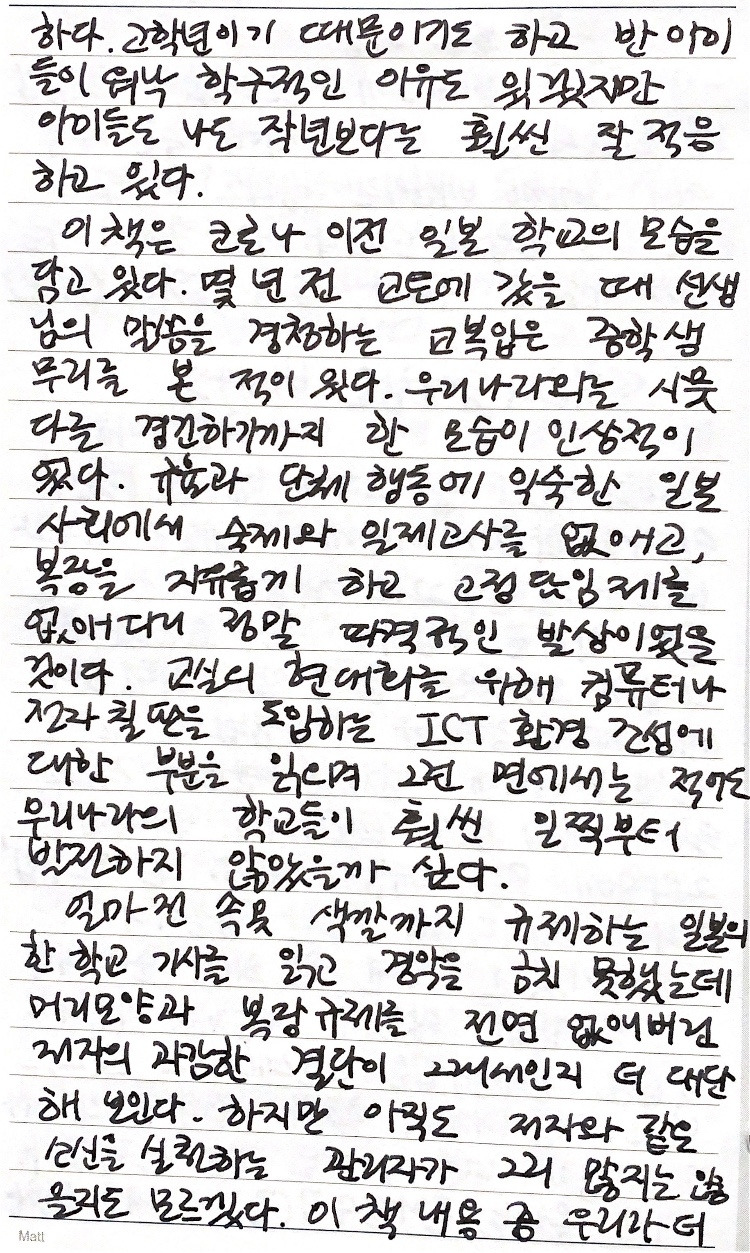 하다. 고학년이기 때문이기도 하고 반 아이
들이 워낙 학구적인 이유도 있겠지만
아이들도 나도 작년보다는 훨씬 잘 적응
하고 있다.
이 책은 코로나 이전 일본 학교의 모습을
담고 있다. 몇 년 전 교토에 갔을 때 선생
님의 말씀을 경청하는 교복입은 중학생
무리를 본 적이 있다. 우리나라와는 사뭇
다른 경건하기까지 한 모습이 인상적이
었다. 규율과 단체 행동에 익숙한 일본
사회에서 숙제와 일제고사를 없애고,
복장을 자유롭게 하고 고정 담임제를
없애다니 정말 파격적인 발상이었을
것이다. 교실의 현대화를 위해 컴퓨터나
전자 칠판을 도입하는 ICT 환경 건설에
대한 부분을 읽으며 그런 면에서는 적어도
우리나라의 학교들이 훨씬 일찍부터
발전하지 않았을까 싶다.
얼마 전 속옷 색깔까지 규제하는 일본의
한 학교 기사를 읽고 경악을 금치 못했는데
머리모양과 복장 규제를 전면 없애버린
저자의 과감한 결단이 그래서인지 더 대단
해 보인다. 하지만 아직도 저자와 같은
신념을 실천하는 관리자가 그리 많지는 않
을지도 모르겠다. 이 책 내용 중 우리라 더
Matt